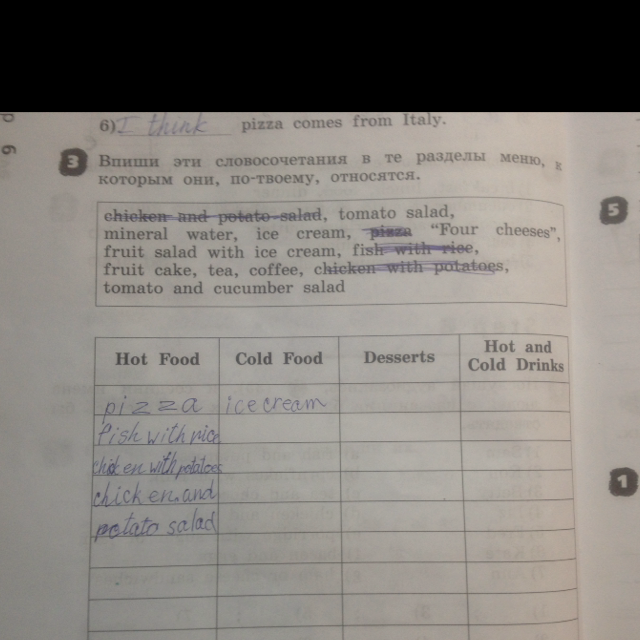 6) I think pizza comes from Italy.
3 Впиши эти словосочетания в те разделы меню, к
которым они, по-твоему, относятся.
5
chicken and potato salad, tomato salad,
mineral water, ice cream, pizza "Four cheeses",
fruit salad with ice cream, fish with rice,
fruit cake, tea, coffee, chicken with potatoes,
tomato and cucumber salad
Hot Food Cold Food Desserts Hot and
Cold Drinks
pizza ice cream
fish with rice
chicken with potatoes
chicken and
potato salad
1